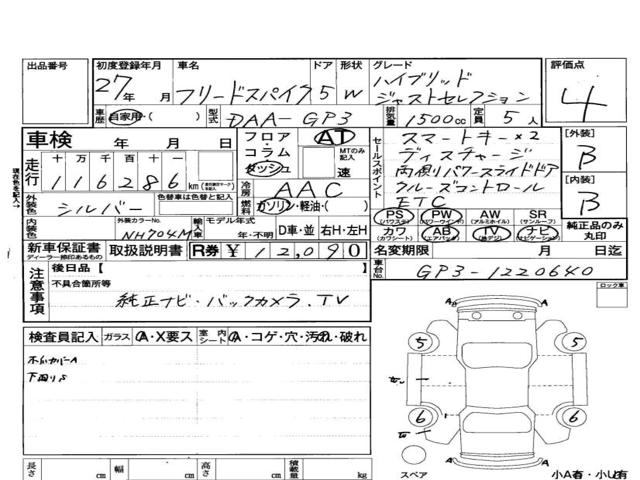 出品番号 初度登録年月 車名 ドア 形状 グレード 評価点
27年 月 フリードスパイク 5 W ハイブリッド ジャストセレクション 4
車歴 自家用・( ) 型式 DAA-GP3 排気量 1500cc 定員 5人
車検 年 月 日
フロア・コラム・ダッシュ AT MTのみ記入 速
セールスポイント
スマートキー×2
ディスチャージ
両側パワースライドドア
クルーズコントロール
ETC
[外装] B
[内装] B
現在色を記入→
走行 十 万 千 百 十 一
116286 km
冷房 AAC
外装色 シルバー 色替車は色替と記入
燃料 ガソリン・軽油・( )
PS (パワステ) PW (パワーウィンドウ) AW (アルミホイル) SR (サンルーフ)
カワ (カワシート) AB (エアバッグ) TV ナビ (ナビゲーション)
純正品のみ丸印
内装色 外装カラーNo. NH704M
輸入車 モデル年式 年・不明 D車・並 右H・左H
新車保証書 ディーラー捺印あるもの 取扱説明書 R券 ¥12,090
名変期限 月 日迄
車台No. GP3-1220640
注意事項
後日品 [ ]
不具合箇所等
純正ナビ・バックカメラ.TV
ロック車
検査員記入 ガラス A・X要ス 室内シート A・コゲ・穴・汚れ・破れ
下回りS
A B A
5 5
6 6
A B A
スペア
長さ cm 幅 cm 高さ cm 積載量 kg
小A有・小U有